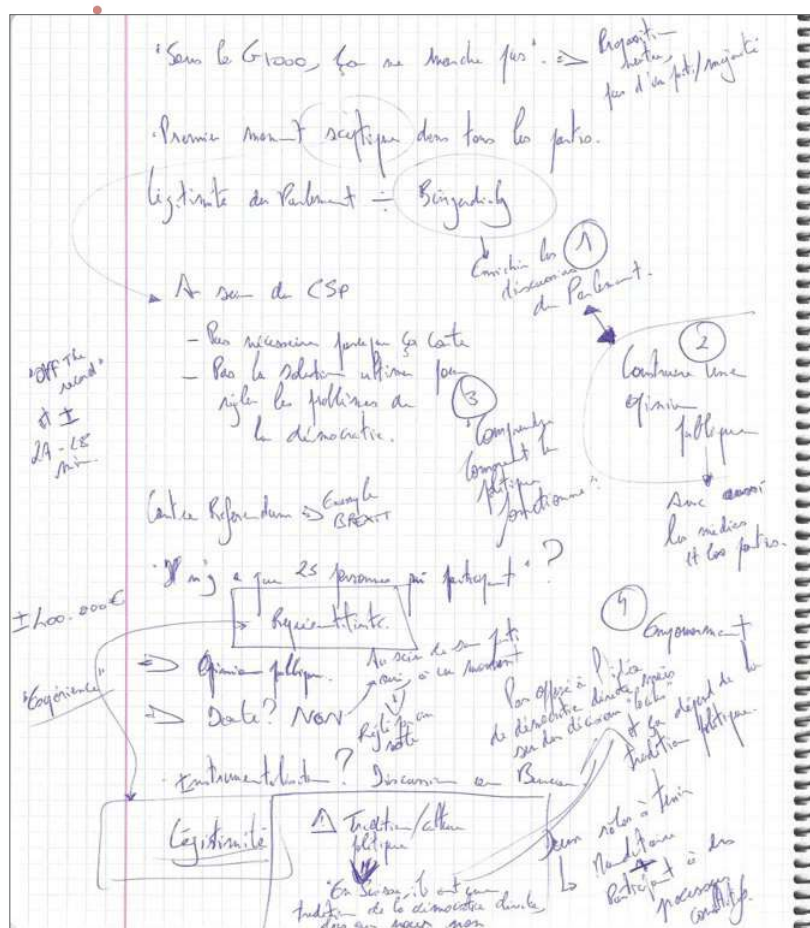 "Sans le G1000, ça ne marche pas". => Proposition
neutre,
pas d'un parti/majorité
· Premier moment sceptique dans tous les partis.
Légitimité du Parlement ÷ Bürgerdialog
Enrichir les
discussions
du Parlement.
1
A sein du CSP
- Pas nécessaire parce que ça coûte
- Pas la solution ultime pour
régler les problèmes de
la démocratie.
"Off The
record"
et ±
24-28
min
2
Construire une
opinion
publique
Avec aussi
les médias
et les partis.
3
"Comprendre
comment le
politique
fonctionne".
Contre Referendum => Exemple
BREXIT
"Il n'y a que 25 personnes qui participent" ?
Représentativité.
±400.000€
"Expérience"
=> Opinion publique.
=> Doute? NON
Au sein de son parti
oui, à un moment
Réglé par un
vote
4
Engouement
Pas opposé à l'idée
de démocratie directe mais
sur des décisions "locales"
et ça dépend de la
tradition politique.
· Instrumentalisation? Discussion au Bureau.
Légitimité
Tradition/culture
politique
"En Suisse, ils ont une
tradition de la démocratie directe,
nous non
Deux rôles à tenir
Mandataire
+
Participant à des
processus